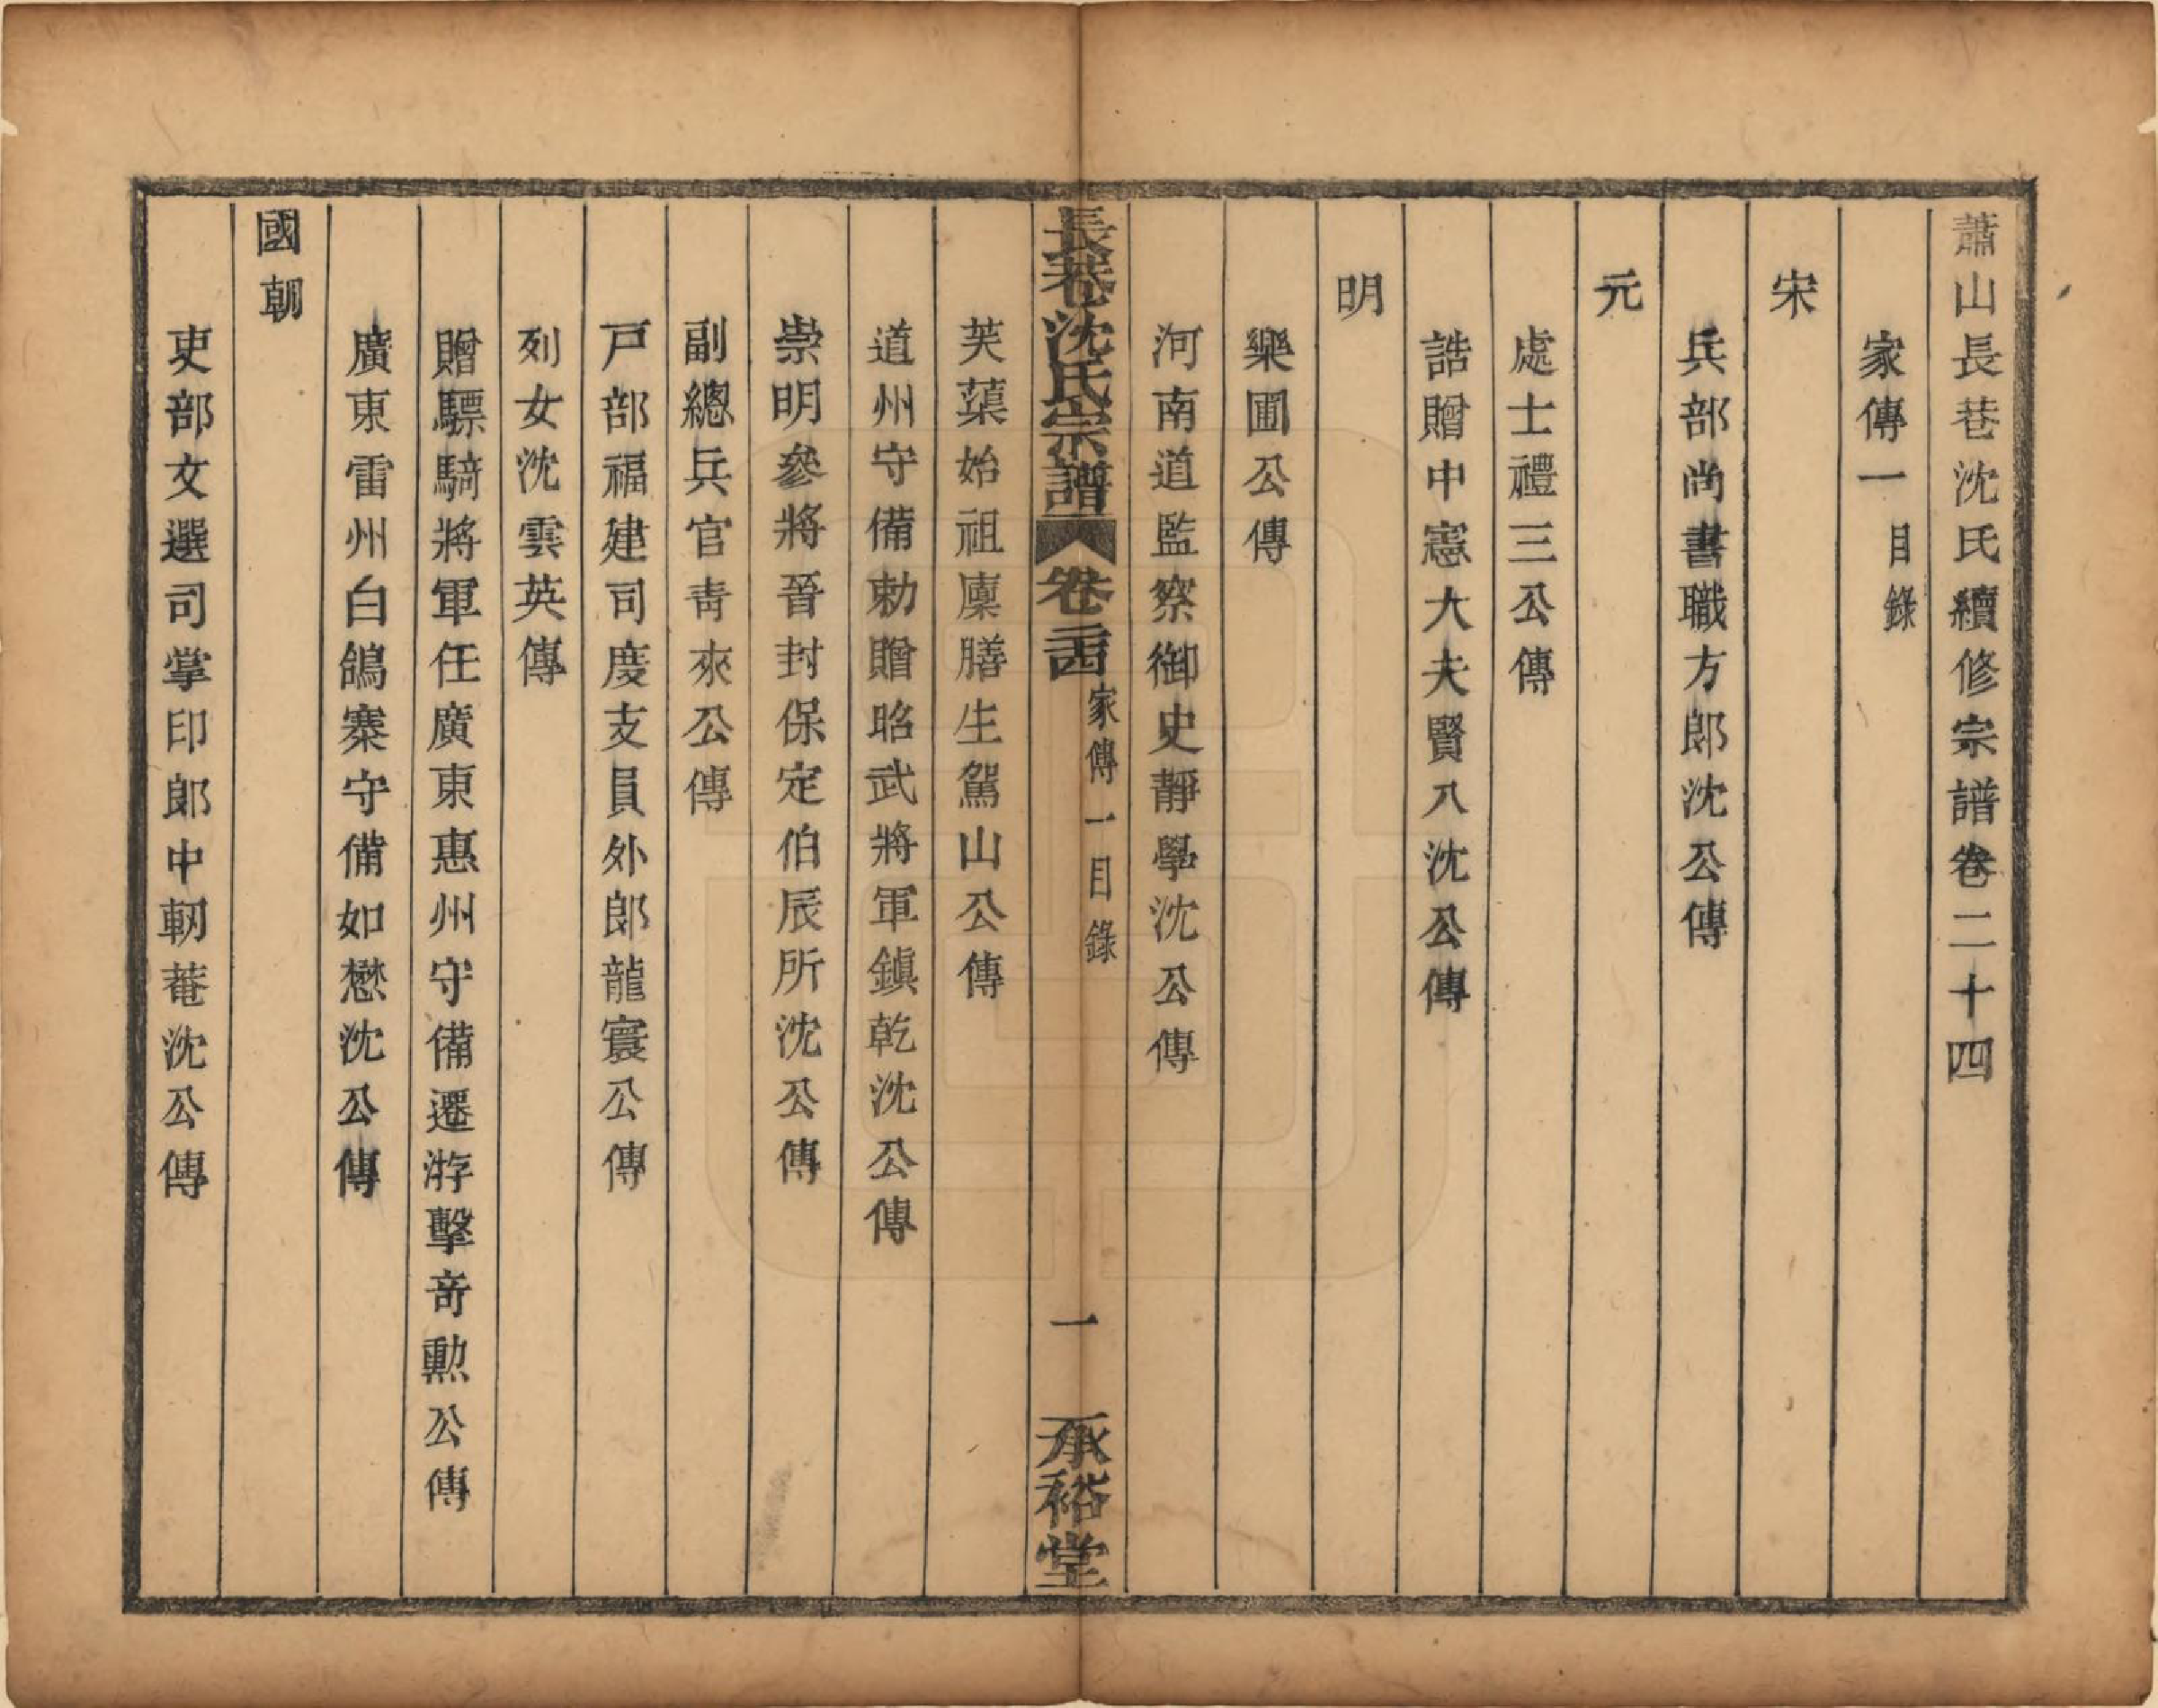 蕭山長巷沈氏續修宗譜卷二十四
家傳一 目錄
宋
兵部尚書職方郎沈公傳
元
處士禮三公傳
誥贈中憲大夫賢八沈公傳
明
樂圃公傳
河南道監察御史靜學沈公傳
長巷沈氏宗譜 卷二十四 家傳一目錄 一 承裕堂
芙蕖始祖廩膳生駕山公傳
道州守備勅贈昭武將軍鎮乾沈公傳
崇明參將晉封保定伯辰所沈公傳
副總兵官青來公傳
戸部福建司度支員外郎龍寰公傳
列女沈雲英傳
贈驃騎將軍任廣東惠州守備遷游擊奇勳公傳
廣東雷州白鴿寨守備如懋沈公傳
國朝
吏部文選司掌印郎中軔菴沈公傳